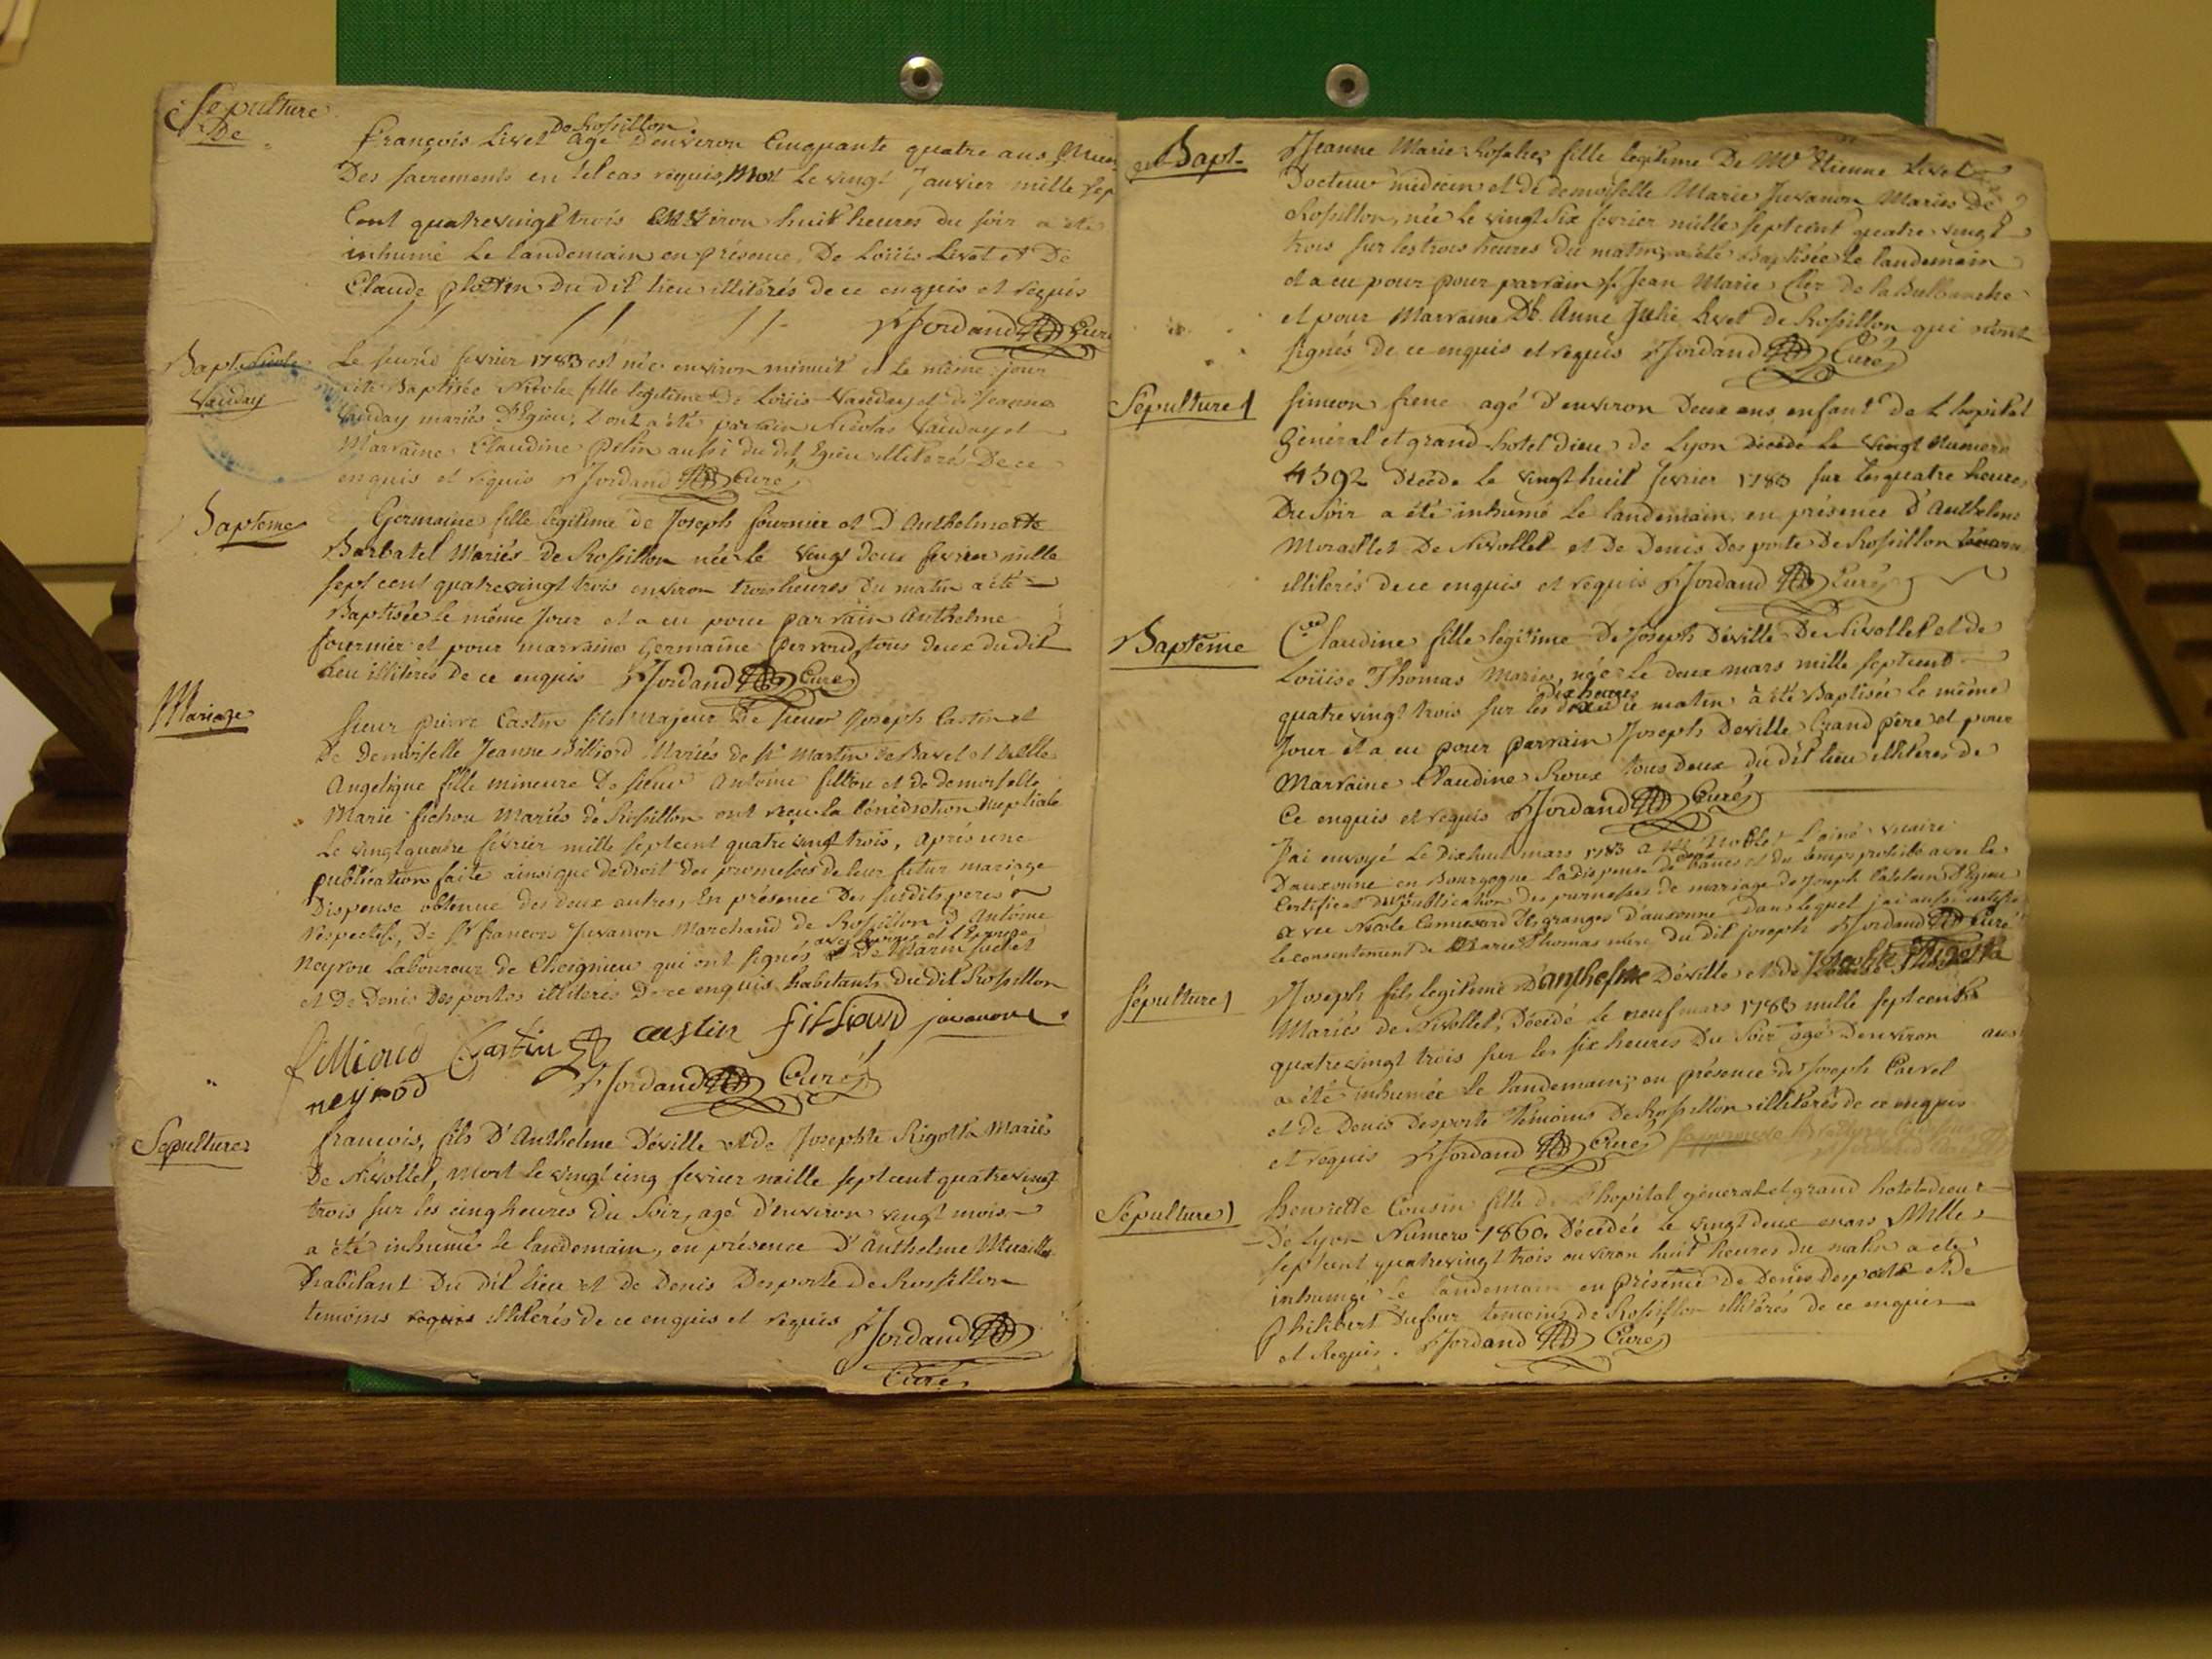 Sepulture
De
françois Livet De Rossillon agé d'environ Cinquante quatre ans
Des sacrements en tel cas requis, Mort Le vingt Janvier mille sep
Cent quatrevingt trois Environ huit heures du soir a été
inhumé Le landemain en présence, De Loüis Livet et De
Claude du dit lieu illiterés de ce enquis et requis
Jordand Curé
Bapt. Nicole
Vauday
Le fevrier 1783 est née environ minuit et Le même jour
été Baptisée Nicole fille legitime De Loüis Vauday et de Jeanne
Vauday mariés D'Egieu, dont a été parrain Nicolas Vauday et
Marraine Claudine Pelin aussi du dit Egieu illiterés De ce
enquis et requis Jordand Curé
Bapteme
Germaine fille legitime de Joseph fournier et D'Anthelmette
Barbatel Mariés de Rossillon née le vingt deux fevrier mille
sept cent quatrevingt trois environ trois heures du matin a été
Baptisée le même Jour et a eu pour parrain Anthelme
fournier et pour marraine Germaine Perroud, tous deux du dit
lieu illiterés de ce enquis Jordand Curé
Mariage
sieur pierre Castin fils Majeur De sieur Joseph Castin et
De Demoiselle Jeanne Billiord Mariés de st Martin de Bavel et
Angelique fille mineure De sieur Antoine filliou et de demoiselle
Marie fichou Mariés de Rossillon ont reçu la bénédiction Nuptiale
Le vingt quatre février mille septcent quatre vingt trois, après une
publication faite ainsi que de droit des promesses de leur futur mariage
Dispense obtenue des deux autres, En présence Des susdits peres
respectifs, De Sr françois Juvanon Marchand de Rossillon D'Antoine
Neyrou laboureur de Cheignieu qui ont signés De Marin
et De Denis Desportes illiterés De ce enquis habitants du dit Rossillon
filliaud Castin castin filliaud juvanon
neyrod Jordand Curé
Sepulture
francois, fils D'Anthelme Déville et de Josephte Rigotta Mariés
De Nivollet, Mort le vingt cinq fevrier mille sept cent quatrevingt
trois sur les cinq heures du soir, agé d'environ vingt mois
a été inhumé le landemain, en présence D'Anthelme
habitant Du dit lieu et de Denis Desporte de Rossillon
temoins requis illiterés de ce enquis et requis Jordand
Curé
Bapt.
Jeanne Marie Rosalie fille legitime De Mr Etienne Livet
Docteur médecin et de demoiselle Marie Juvanon Mariés De
Rossillon, née le vingt six fevrier mille septcent quatre vingt
trois sur les trois heures du matin, a été Baptisée le landemain
et a eu pour pour parrain Sr Jean Marie de la
et pour Marraine Dlle Anne Julie Livet de Rossillon qui n'ont
signés de ce enquis et requis Jordand Curé
Sepulture
Simeon frene agé d'environ Deux ans enfant de L'hopital
Général et grand hotel dieu de Lyon Décédé Le vingt Numero
4392 Décédé le vingt huit fevrier 1783 sur les quatre heures
Du soir a été inhumé le landemain, en présence D'Anthelme
De Nivollet et de Denis Desporte De Rossillon
illiterés de ce enquis et requis Jordand Curé
Baptême
Claudine fille legitime De Joseph Déville De Nivollet et de
Loüise Thomas Mariés, née le deux mars mille septcent
quatre vingt trois sur les dix heures matin a été Baptisée le même
Jour et a eu pour parrain Joseph Deville Grand père et pour
Marraine Claudine Roux tous deux du dit lieu illiterés de
Ce enquis et requis Jordand Curé
J'ai envoyé Le Dixhuit mars 1783 a Mr Noblet L'ainé vicaire
D'auxonne en Bourgogne La Dispense de deux bancs et du temps prohibé avec le
Certificat De publication des promesses de mariage de Joseph D'Egieu
avec Nicole Des granges D'auxonne Dans lequel j'ai aussi certifié
le consentement de Marie Thomas mère du dit joseph Jordand Curé
Sépulture
Joseph fils legitime D'anthelme Déville et de Josephte Rigotta
Mariés de Nivollet, Décédé le neuf mars 1783 mille septcent
quatrevingt trois sur les six heures Du Soir agé D'environ ans
a été inhumée le landemain, en présence de Joseph
et de Denis Desporte temoins De Rossillon illiterés de ce enquis
et requis Jordand Curé
Sepulture
henriette Cousin fille de L'hopital géneral et grand hotel-dieu
De Lyon Numero 1860. Décedée le vingt deux mars Mille
septcent quatrevingt trois environ huit heures du matin a été
inhumée le landemain en présence de Denis Desporte et de
Philibert Dufour temoins de Rossillon illitérés de ce enquis
et Requis. Jordand Curé